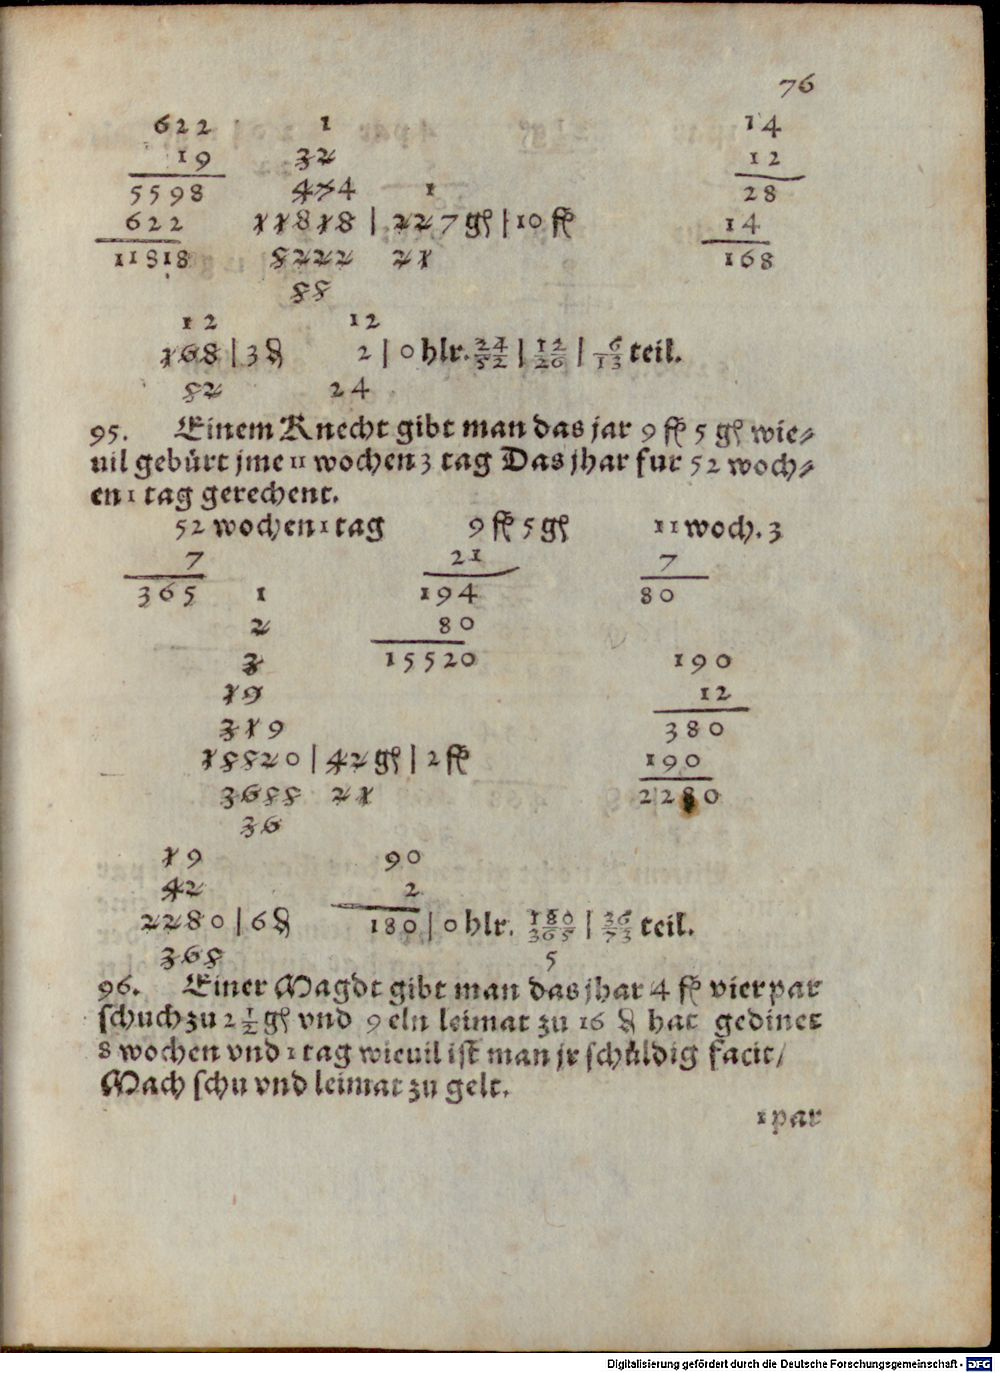 76
622 1 14
19 32 12
5598 474 1 28
622 11818 | 227 gſ | 10 fſ 14
11818 5222 21 168
55
12 12
168 | 3 ₰ 2 | 0 hlr. 24/52 | 12/26 | 6/13 teil.
52 24
95. Einem Knecht gibt man das jar 9 fſ 5 gſ wie⸗
uil gebürt jme 11 wochen 3 tag Das jhar fur 52 woch⸗
en 1 tag gerechent.
52 wochen 1 tag 9 fſ 5 gſ 11 woch. 3
7 21 7
365 1 194 80
2 80
3 15520 190
19 12
319 380
15520 | 42 gſ | 2 fſ 190
3655 21 2280
36
19 90
42 2
2280 | 6 ₰ 180 | 0 hlr. 180/365 | 36/73 teil.
365 5
96. Einer Magdt gibt man das jhar 4 fſ vier par
ſchuch zu 2 1/2 gſ vnd 9 eln leimat zu 16 ₰ hat gedinet
8 wochen vnd 1 tag wieuil iſt man jr ſchüldig facit/
Mach ſchu vnd leimat zu gelt.
1 par
Digitalisierung gefördert durch die Deutsche Forschungsgemeinschaft - DFG